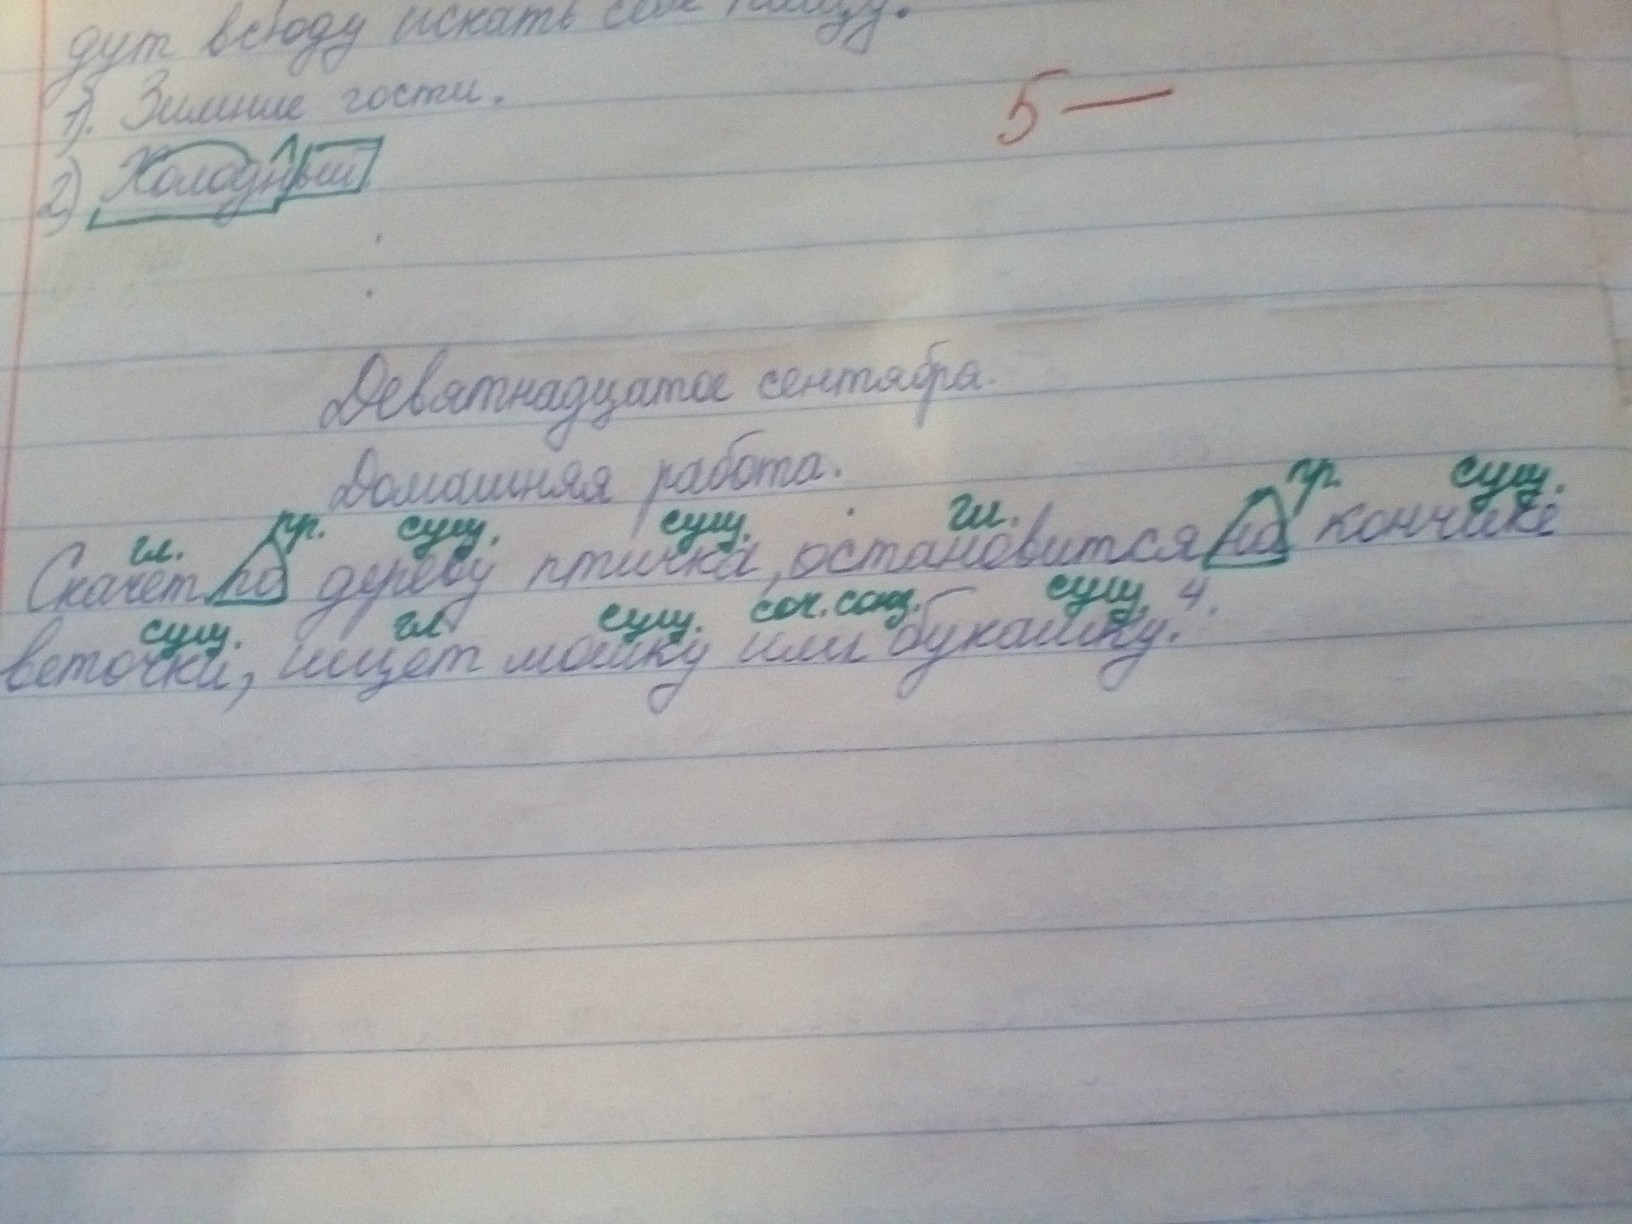 дут всюду искать себе пищу.
1). Зимние гости.
5 —
2) Холодный
Девятнадцатое сентября.
Домашняя работа.
гл. пр. сущ. сущ. гл. пр. сущ.
Скачет по дереву птичка, остановится на кончике
сущ. гл сущ. соч. союз. сущ. 4.
веточки, ищет мошку или букашку.